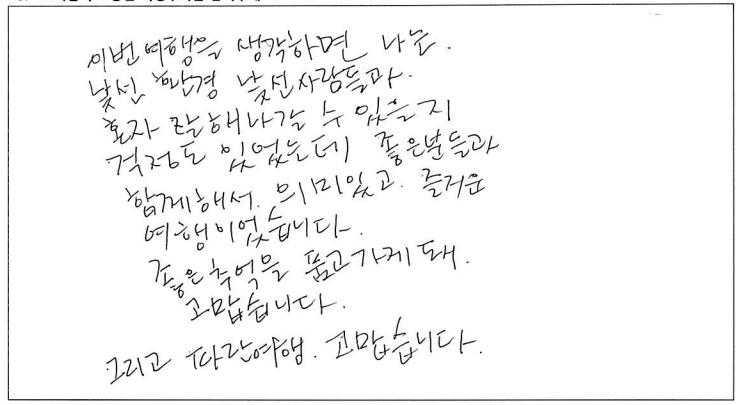 이번여행을 생각하면 나는.
낯선 환경 낯선사람들과.
혼자 잘해나갈 수 있을지
걱정도 있었는데 좋은분들과
함께해서. 의미있고. 즐거운
여행이었습니다.
좋은추억을 품고가게 돼.
고맙습니다.
그리고 파란여행. 고맙습니다.